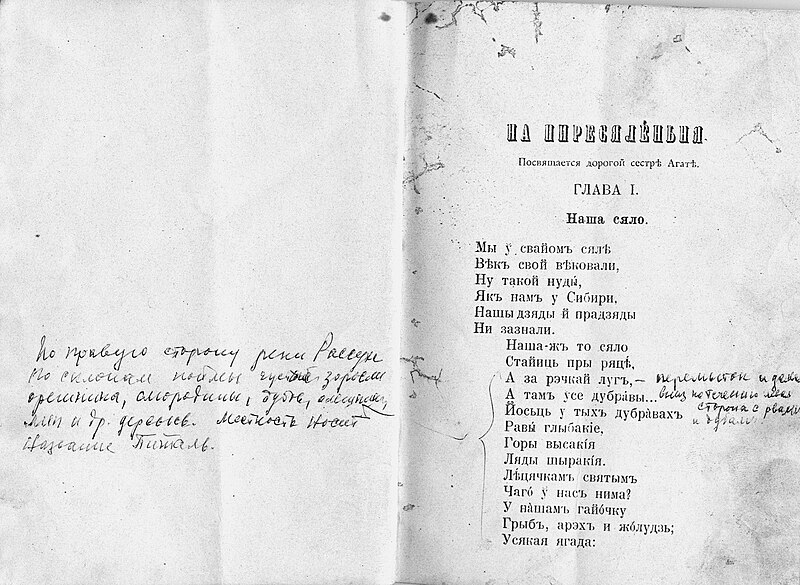 По правую сторону реки Рассухи
по склонам поймы густые заросли
орешника, смородины, дубов,
лип и др. деревьев. Местность носит
название Пижаль.
НА ПИРЕСЯЛЕ́НЬНЯ.
Посвящается дорогой сестрѣ Агатѣ.
ГЛАВА I.
Наша сяло.
Мы ў свайомъ сялѣ
Вѣкъ свой вѣковали,
Ну такой нуды́,
Якъ намъ у Сибири,
Нашы дзяды й прадзяды
Ни зазнали.
Наша-жъ то сяло
Стайиць пры ряцѣ,
А за рэчкай лугъ, –
А тамъ ўсе дубра́вы... вниз по течению левая
Йосьць у тыхъ дубра́вахъ сторона с
Равы́ глыбакіе,
Горы высакія
Ляды шыракія.
Лѣцячкамъ святымъ
Чаго́ ў насъ нима?
У на́шамъ гайо́чку
Грыбъ, арэхъ и жо́лудзь;
Усякая ягада: